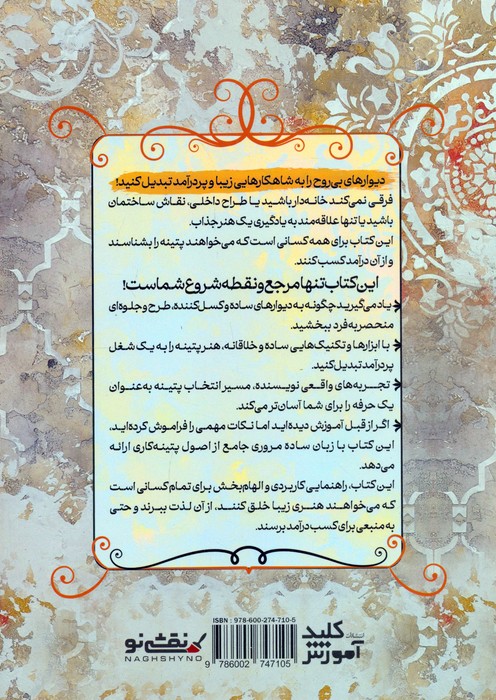 دیوارهای بی‌روح را به شاهکارهایی زیبا و پردرآمد تبدیل کنید!
فرقی نمی‌کند خانه‌دار باشید یا طراح داخلی، نقاش ساختمان
باشید یا تنها علاقه‌مند به یادگیری یک هنر جذاب.
این کتاب برای همه کسانی است که می‌خواهند پتینه را بشناسند
و از آن درآمد کسب کنند.
این کتاب تنها مرجع و نقطه شروع شماست!
یاد می‌گیرید چگونه به دیوارهای ساده و کسل‌کننده، طرح و جلوه‌ای
منحصر به فرد ببخشید.
با ابزارها و تکنیک‌هایی ساده و خلاقانه، هنر پتینه را به یک شغل
پردرآمد تبدیل کنید.
تجربه‌های واقعی نویسنده، مسیر انتخاب پتینه به‌عنوان
یک حرفه را برای شما آسان‌تر می‌کند.
اگر از قبل آموزش دیده‌اید اما نکات مهمی را فراموش کرده‌اید،
این کتاب با زبان ساده مروری جامع از اصول پتینه‌کاری ارائه
می‌دهد.
این کتاب، راهنمایی کاربردی و الهام‌بخش برای تمام کسانی است
که می‌خواهند هنری زیبا خلق کنند، از آن لذت ببرند و حتی
به منبعی برای کسب درآمد برسند.
انتشارات
کلید
آموزش
ISBN : 978-600-274-710-5
9 786002 747105
نقش نو
NAGHSHYNO